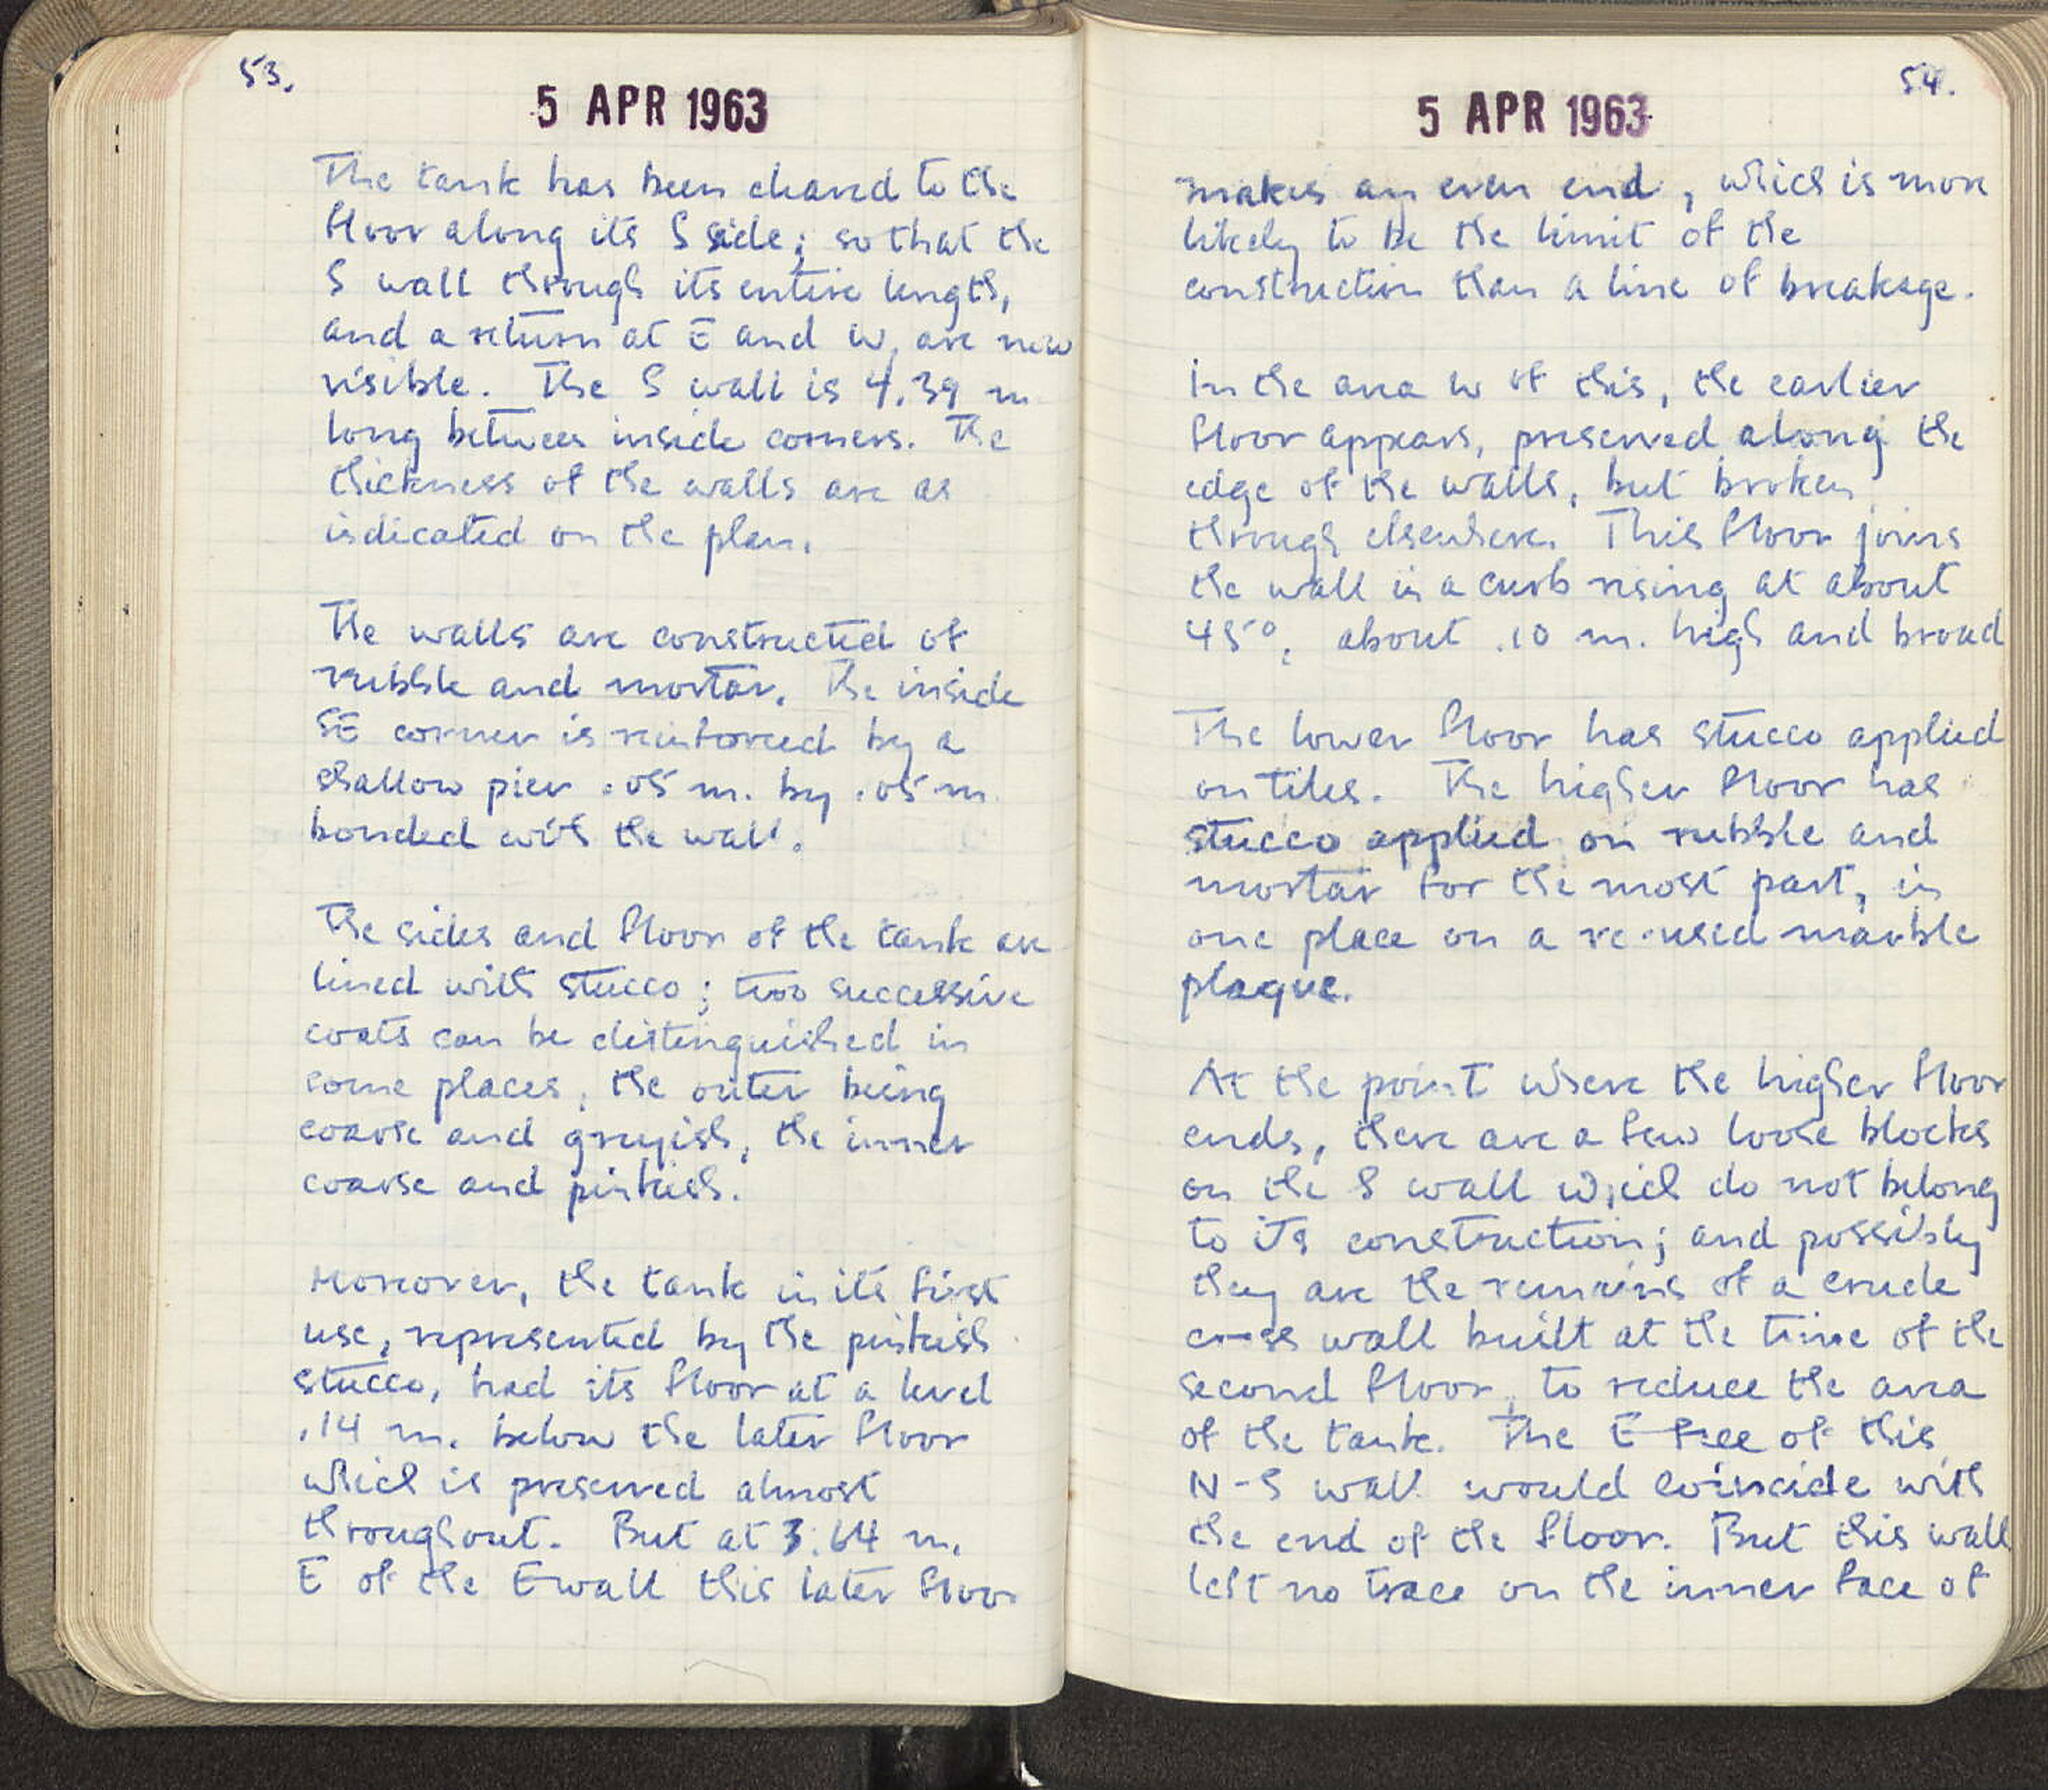 53.
5 APR 1963
The tank has been cleared to the
floor along its S side; so that the
S wall through its entire length,
and a return at E and W, are now
visible. The S wall is 4.39 m
long between inside corners. The
thickness of the walls are as
indicated on the plan.
The walls are constructed of
rubble and mortar. The inside
SE corner is reinforced by a
shallow pier .05 m. by .05 m
bonded with the wall.
The sides and floor of the tank are
lined with stucco; two successive
coats can be distinguished in
some places, the outer being
coarse and greyish, the inner
coarse and pinkish.
Moreover, the tank in its first
use, represented by the pinkish
stucco, had its floor at a level
.14 m. below the later floor
which is preserved almost
throughout. But at 3.64 m.
E of the E wall this later floor
54.
5 APR 1963
makes an even end, which is more
likely to be the limit of the
construction than a line of breakage.
In the area W of this, the earlier
floor appears, preserved along the
edge of the walls, but broken
through elsewhere. This floor joins
the wall in a curb rising at about
45°, about .10 m. high and broad
The lower floor has stucco applied
on tiles. The higher floor has
stucco applied on rubble and
mortar for the most part, in
one place on a re-used marble
plaque.
At the point where the higher floor
ends, there are a few loose blocks
on the S wall which do not belong
to its construction; and possibly
they are the remains of a crude
cross wall built at the time of the
second floor, to reduce the area
of the tank. The E face of this
N-S wall would coincide with
the end of the floor. But this wall
left no trace on the inner face of